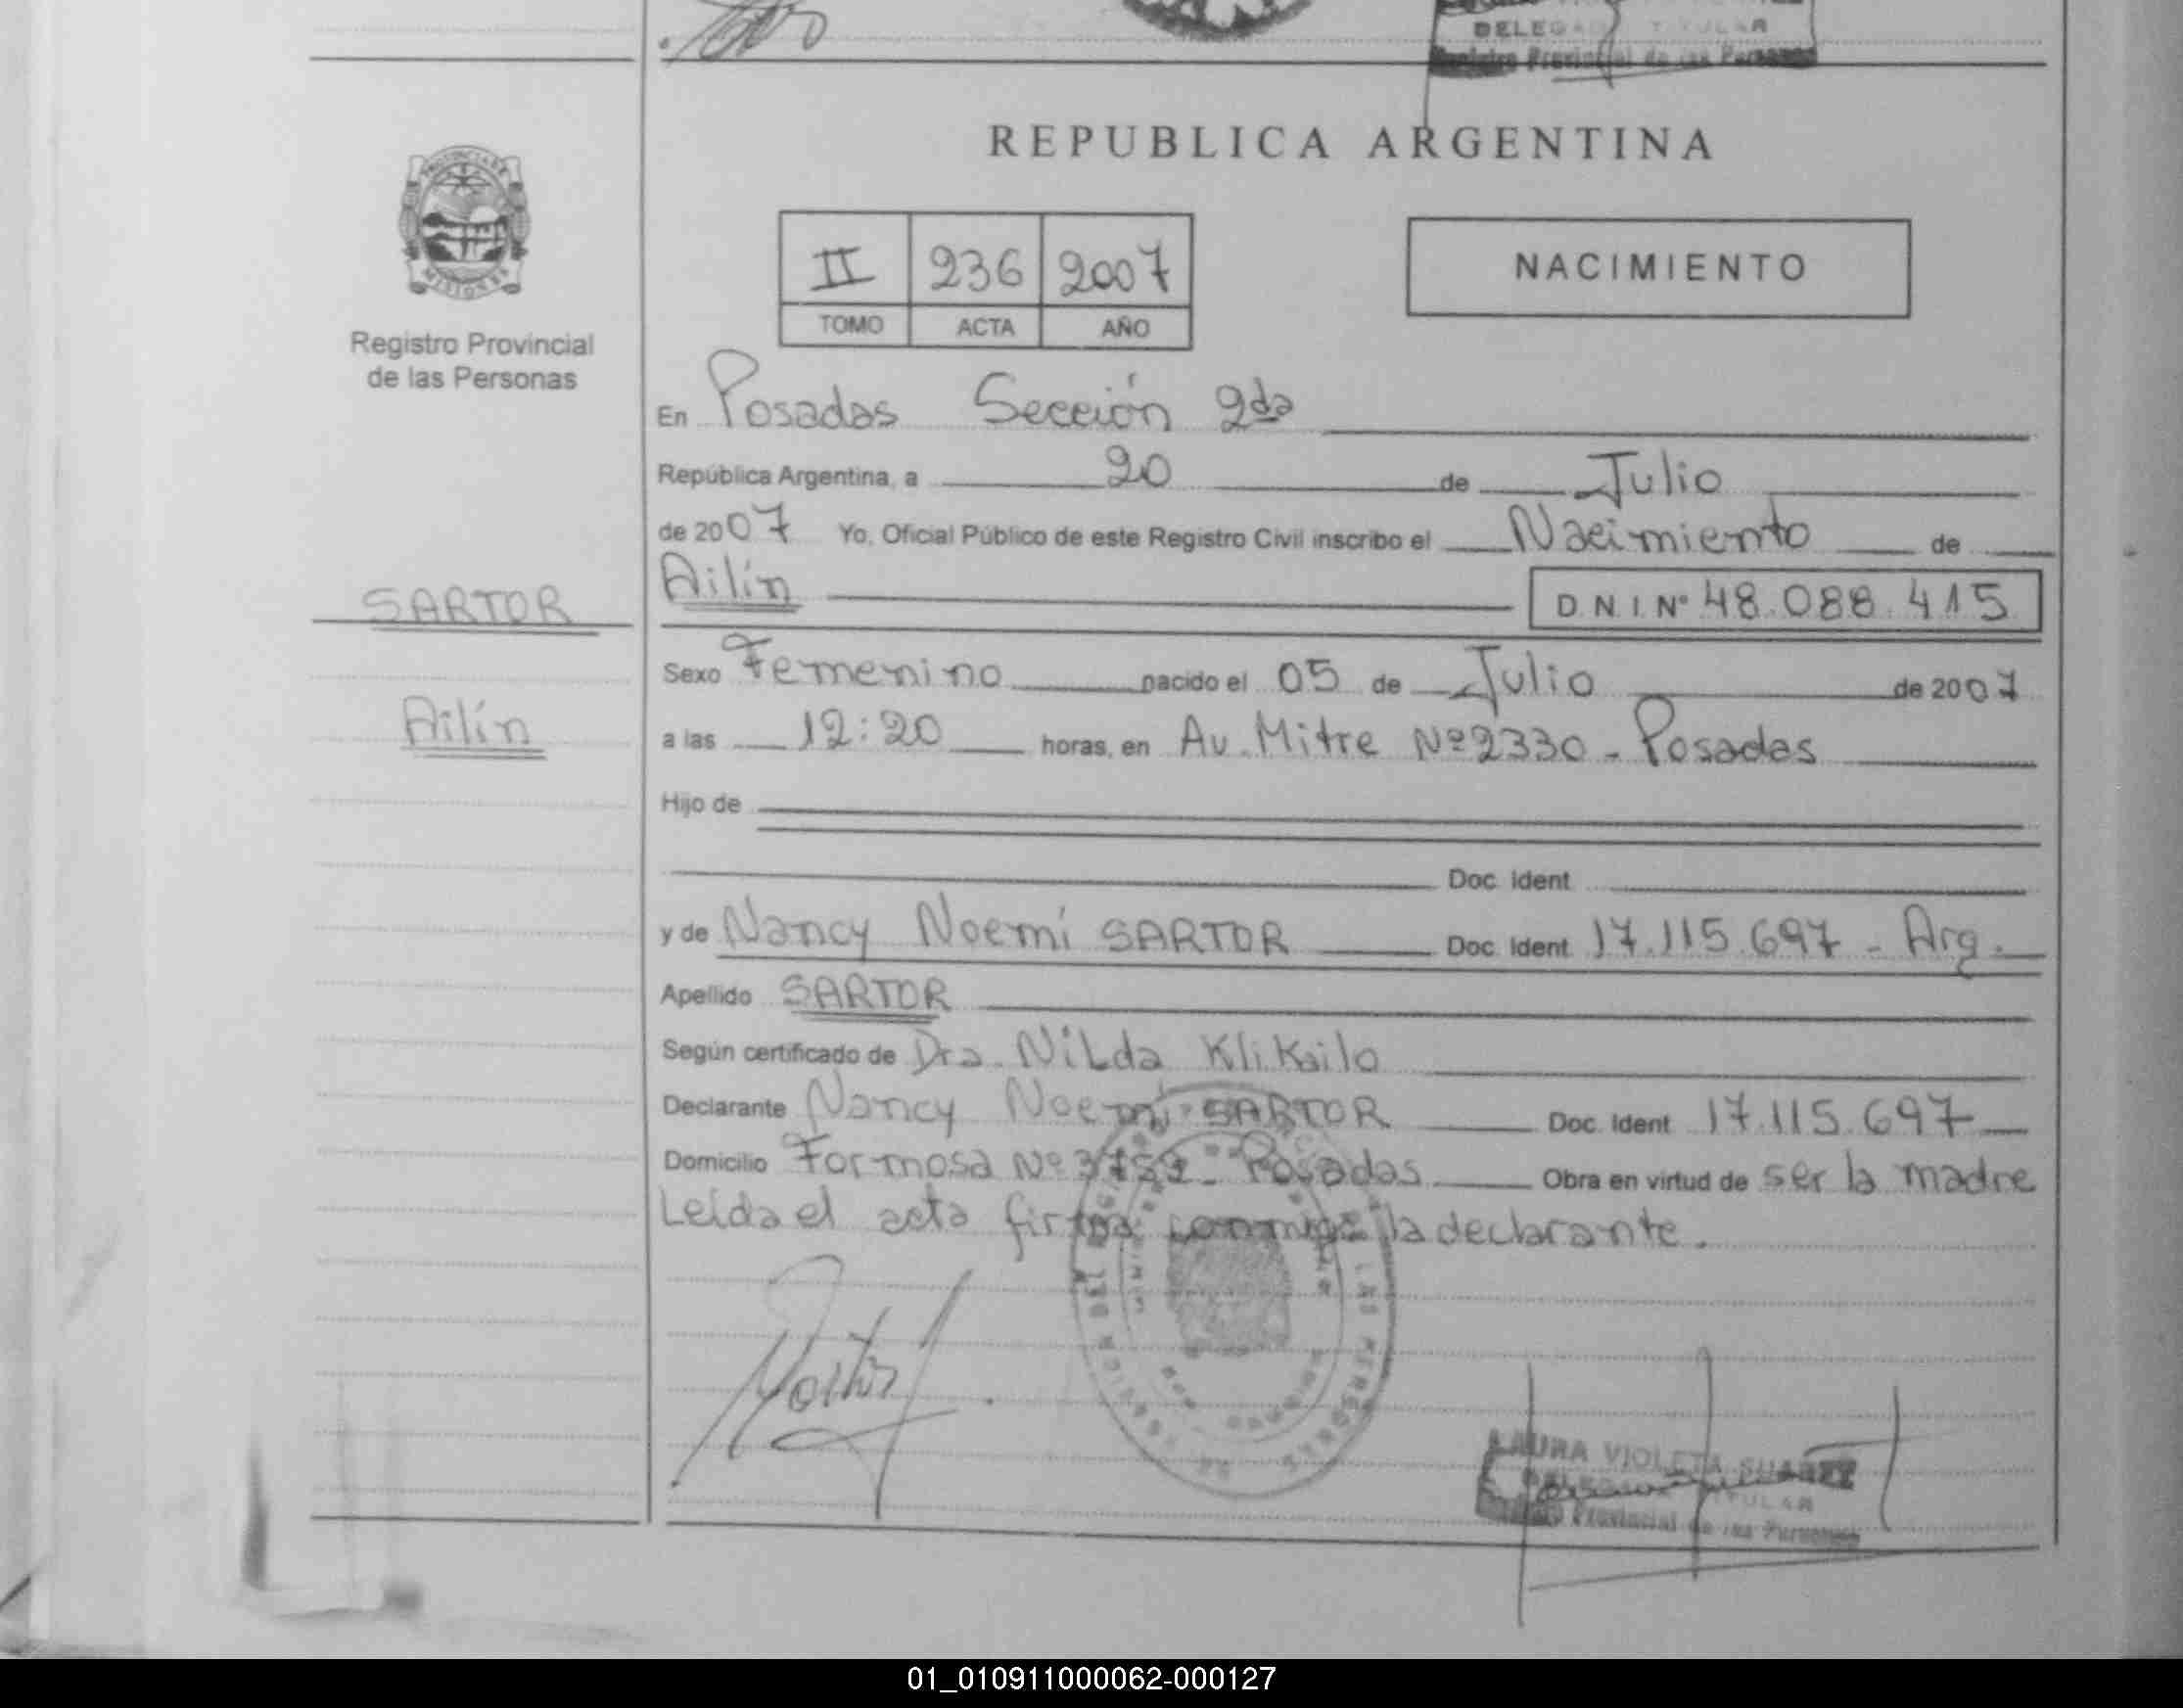 DELEGADO TITULAR
Registro Provincial de las Personas
REPUBLICA ARGENTINA
PROVINCIA DE
MISIONES
Registro Provincial
de las Personas
II 236 2007
TOMO ACTA AÑO
NACIMIENTO
En Posadas Sección 2da
República Argentina, a 20 de Julio
de 2007 Yo, Oficial Público de este Registro Civil inscribo el Nacimiento de
SARTOR
Ailín
Ailín D.N.I. Nº 48.088.415
Sexo Femenino nacido el 05 de Julio de 2007
a las 12:20 horas, en Av. Mitre Nº 2330 - Posadas
Hijo de
Doc. Ident.
y de Nancy Noemí SARTOR Doc. Ident. 17.115.697 - Arg.
Apellido SARTOR
Según certificado de Dra. Nilda Klikailo
Declarante Nancy Noemí SARTOR Doc. Ident. 17.115.697
Domicilio Formosa Nº Posadas Obra en virtud de ser la madre
Leída el acta firma conmigo la declarante.
LAURA VIOLETA SUAREZ
DELEGADO TITULAR
Registro Provincial de las Personas
01_010911000062-000127